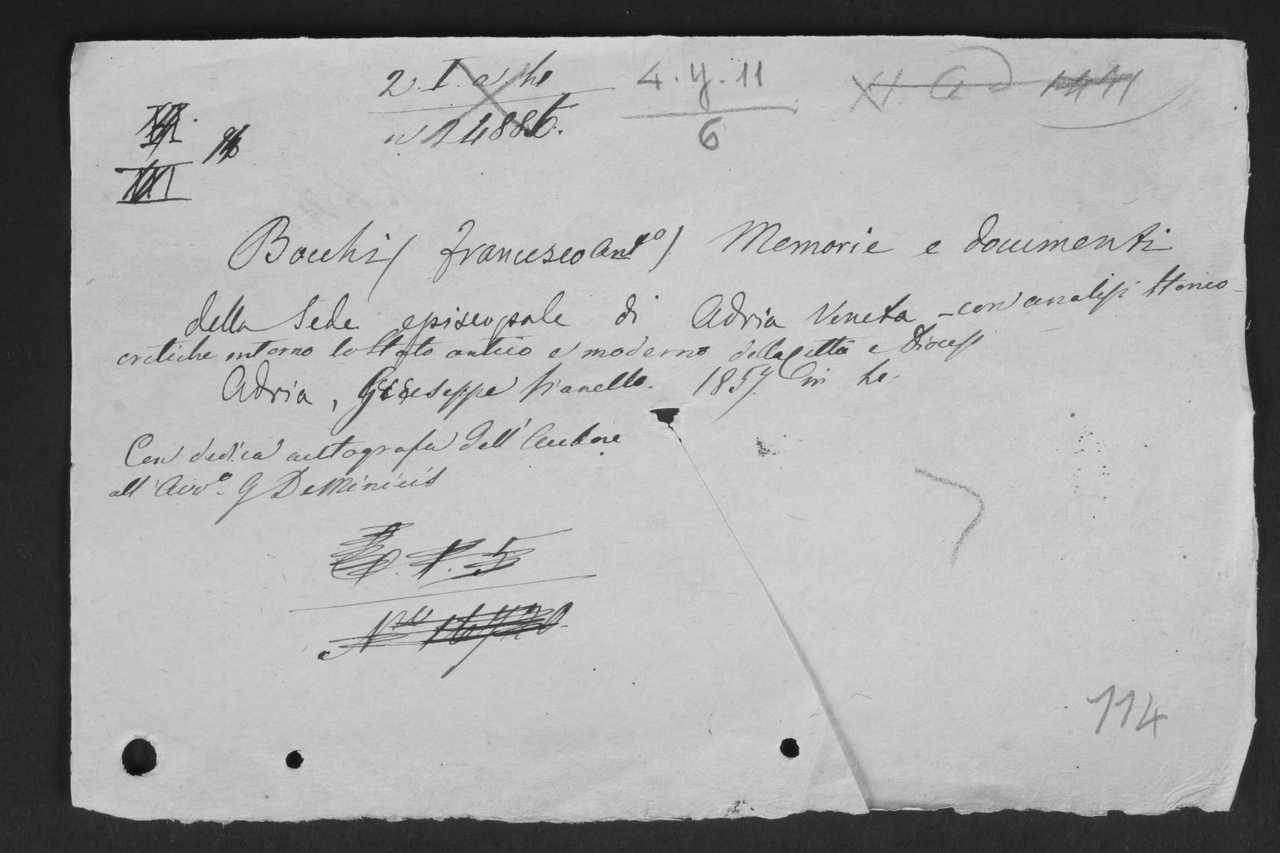 4. y. 11
6
n 14886.
Bocchi (Francesco Ant.º) Memorie e documenti
della Sede episcopale di Adria Veneta - con analisi storico-
critiche intorno lo Stato antico e moderno della città e Diocesi
Adria, Giuseppe Vianello. 1857. in
Con dedica autografa dell'Autore
all'Avv.º G DeMinicis
Nro 16720
114